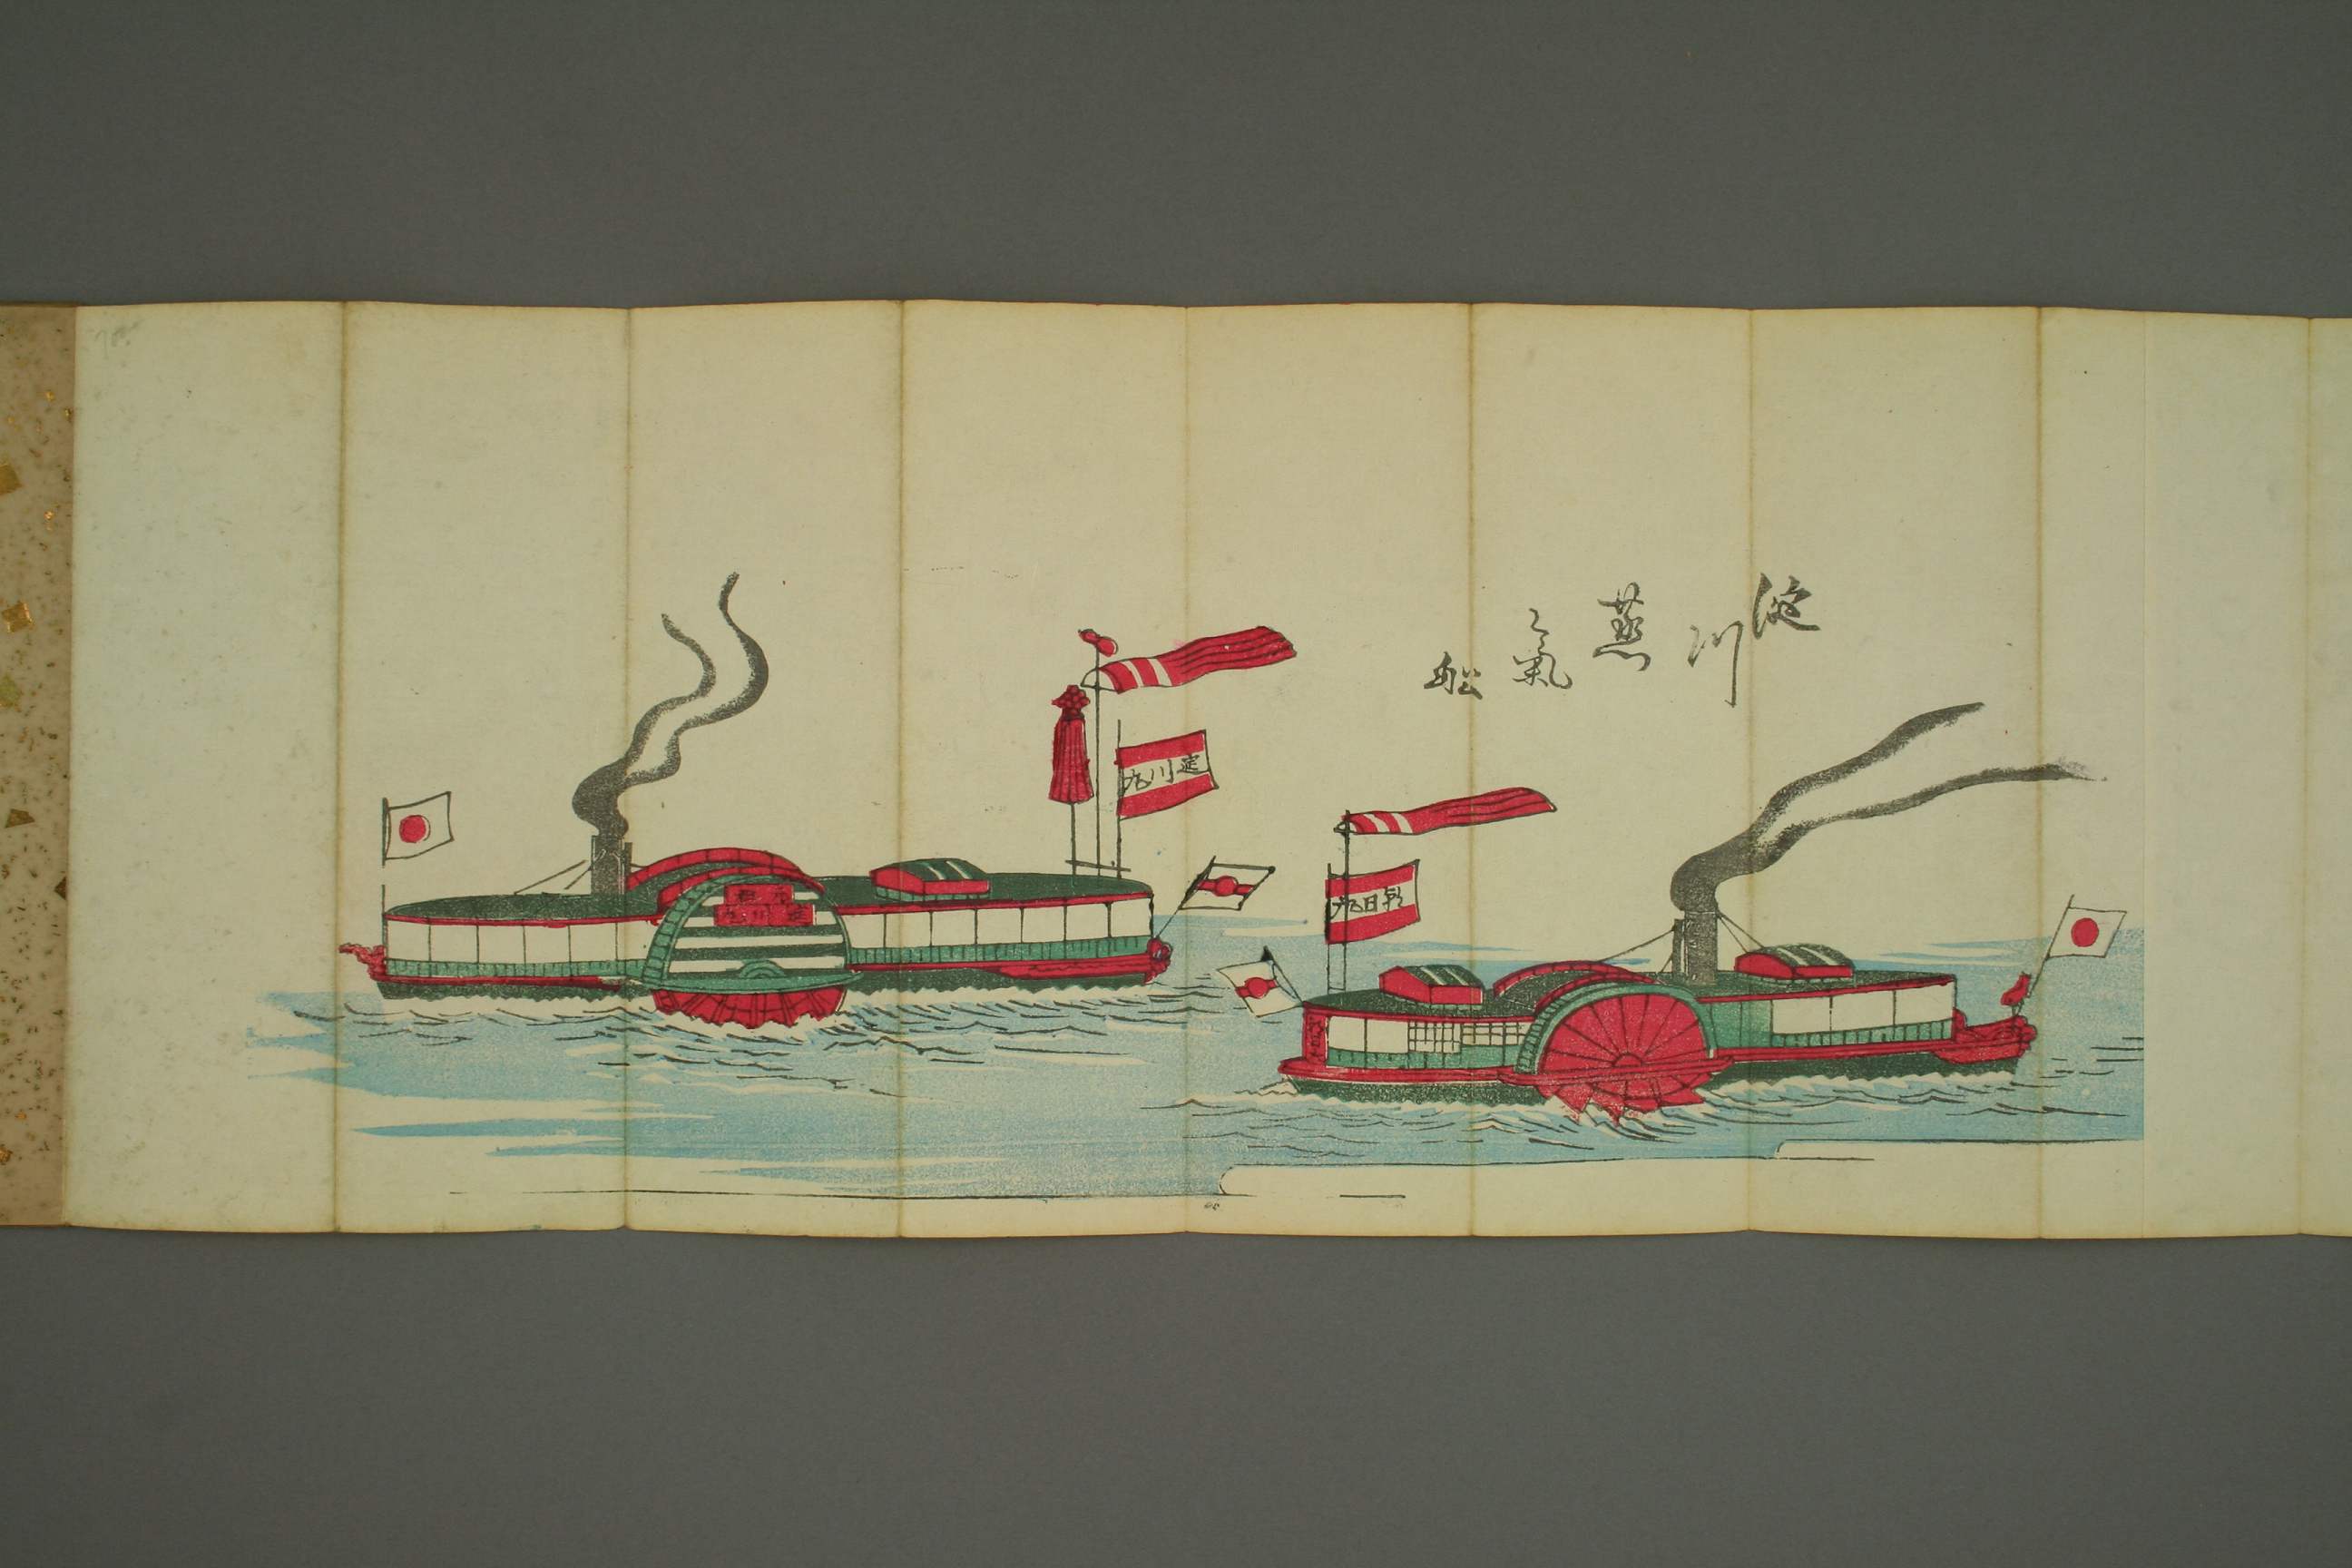 淀川蒸氣船
淀川丸
朝日丸
淀川丸